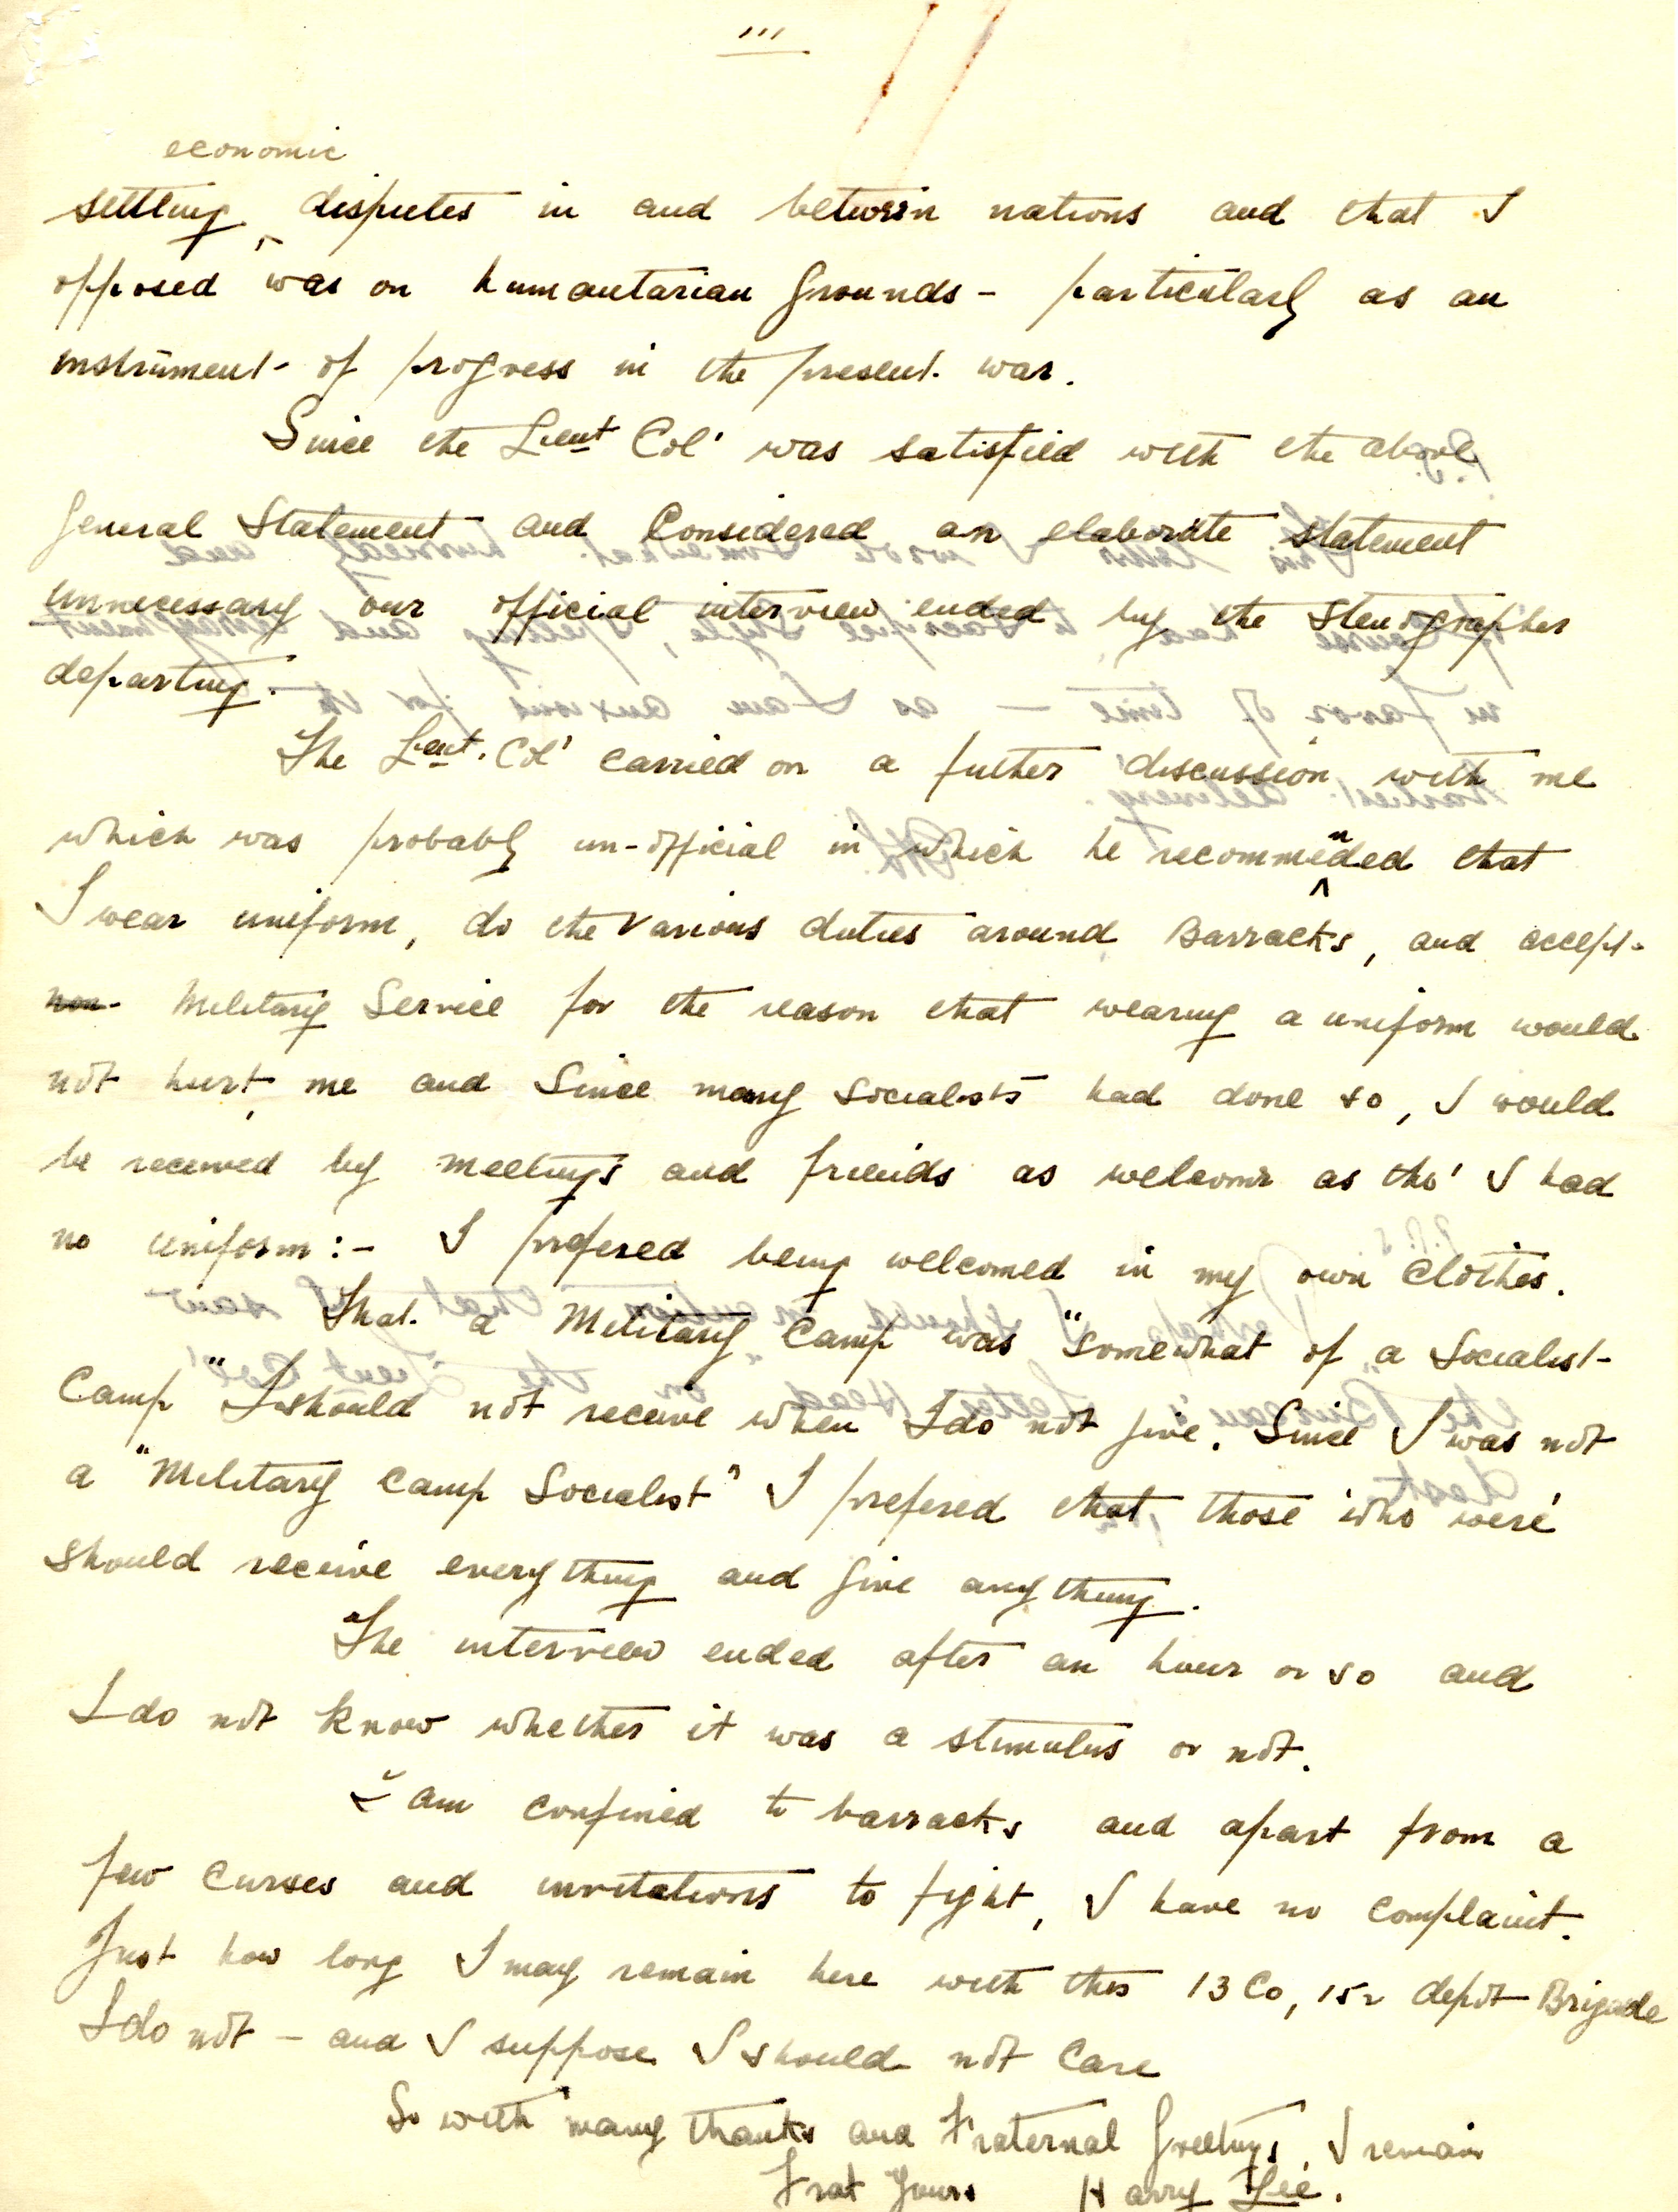 III
economic
settling disputes in and between nations and that I
opposed was on humanitarian grounds - particularly as an
instrument of progress in the present war.
Since the Lieut Col' was satisfied with the above
general Statement and Considered an elaborate statement
unnecessary our official interview ended by the stenographer
departing.
The Lieut. Col' carried on a futher discussion with me
which was probably un-official in which he recommended that
I wear uniform, do the various duties around Barracks, and accept
non- Military Service for the reason that wearing a uniform would
not hurt me and Since many Socialists had done so, I would
be received by meetings and friends as welcome as tho' I had
no uniform:- I prefered being welcomed in my own clothes.
That a Military Camp was "somewhat of a Socialist
Camp" I should not receive when I do not give. Since I was not
a "Military Camp Socialist" I prefered that those who were
should receive everything and give anything.
The interview ended after an hour or so and
I do not know whether it was a stimulus or not.
I am confined to barracks and apart from a
few curses and invitations to fight, I have no complaint.
Just how long I may remain here with this 13 Co, 152 depot Brigade
I do not - and I suppose I should not care
So with many thanks and Fraternal Greetings, I remain
Frat Yours Harry Lee.